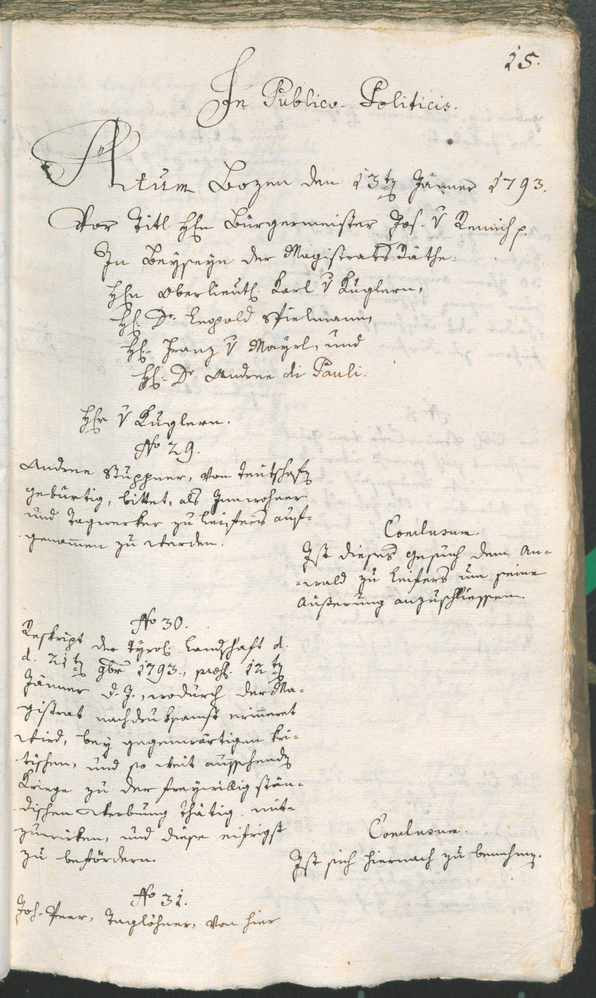 15.
In Publico-Politicis.
Actum Bozen den 13ten Jänner 1793.
Vor Titl Hhn Bürgermeister Jos. v Remich p.
In Beyseyn der Magistrats Räthe.
Hhn Oberlieutt. Karl v Kuglern,
Hh. Dr. Leopold Spielmann,
Hh. Franz v Mayrl, und
Hh. Dr Andree di Pauli.
Hhr v Kuglern.
No 29.
Andree Stuppner, von Teutschofen
gebürtig, bittet, als Innwohner
und Tagwerker zu Leifers auf-
genommen zu werden.
Conclusum.
Ist dieses Gesuch dem An-
-wald zu Leifers um seine
Äußerung anzuschliessen.
No 30.
Reskript der Tyrol. Landschaft d.
d. 21ten Xbr 1793., praes. 12ten
Jänner d. J., wodurch der Ma-
gistrat nachdrucksamst erinneret
wird, bey gegenwärtigen kri-
tischen, und so weit aussehenden
Kriege zu der freywillig stän-
dischen Werbung thätig mit-
zuwirken, und diese eifrigst
zu befördern.
Conclusum.
Ist sich hiernach zu benehmen.
No 31.
Joh. Peer, Taglöhner, von hier